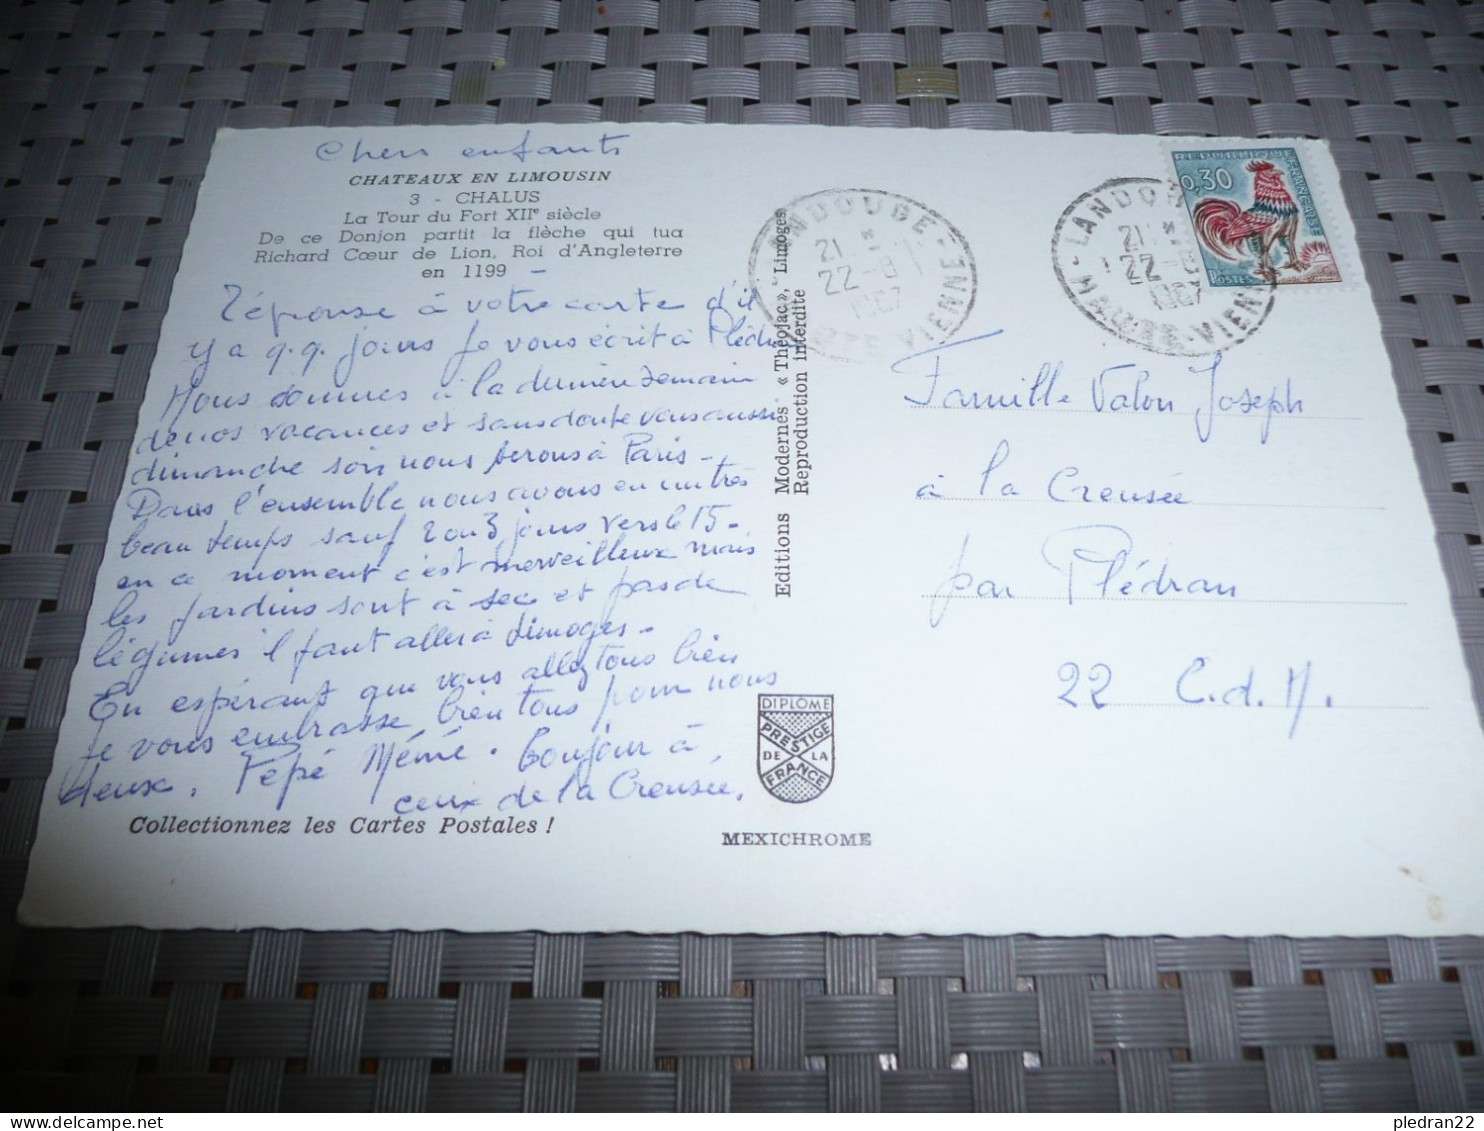 Chers enfants
CHATEAUX EN LIMOUSIN
3 - CHALUS
La Tour du Fort XIIe siècle
De ce Donjon partit la flèche qui tua
Richard Cœur de Lion, Roi d'Angleterre
en 1199
Réponse à votre carte d'il
y a q.q. jours je vous écrit à Plédran
Nous sommes à la dernière semain
de nos vacances et sans doute vous aussi
dimanche soir nous serons à Paris -
Dans l'ensemble nous avons eu un très
beau temps sauf 2 ou 3 jours vers le 15 -
en ce moment c'est merveilleux mais
les jardins sont à sec et pas de
légumes il faut aller à Limoges -
En espérant que vous allez tous bien
je vous embrasse bien tous pour nous
deux. Pépé Mémé. Bonjour à
ceux de la Creusée.
Collectionnez les Cartes Postales !
Editions Modernes « Théojac », Limoges
Reproduction interdite
DIPLÔME
PRESTIGE
DE LA
FRANCE
MEXICHROME
LANDOUGE
21 *
22-8
1967
VIENNE
LANDO
21 *
22-8
196
VIENN
REPUBLIQUE FRANÇAISE
0,30
POSTES
Famille Valon Joseph
à la Creusée
par Plédran
22 C.d.N.
delcampe.net
pledran22